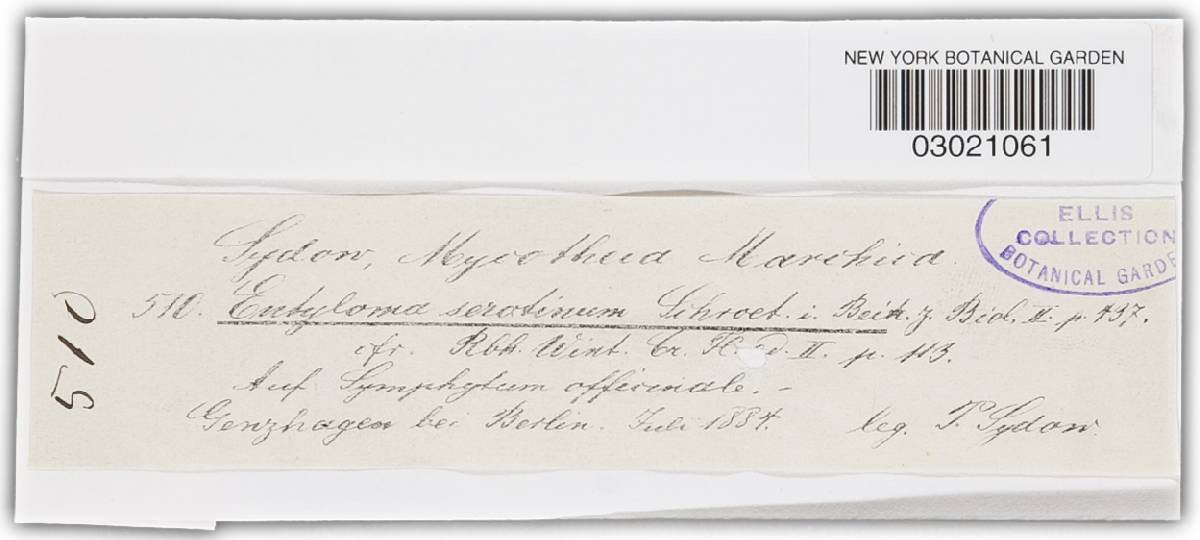 NEW YORK BOTANICAL GARDEN
03021061
ELLIS
COLLECTION
BOTANICAL GARDE
Sydow, Mycotheca Marchica.
510. Entyloma serotinum Schroet. i. Beitr. z. Biol. II. p. 437.
cfr. Rbh. Wint. Cr. Fl. d. II. p. 113.
Auf Symphytum officinale. -
Genzhagen bei Berlin. Juli 1884. leg. P. Sydow.
510